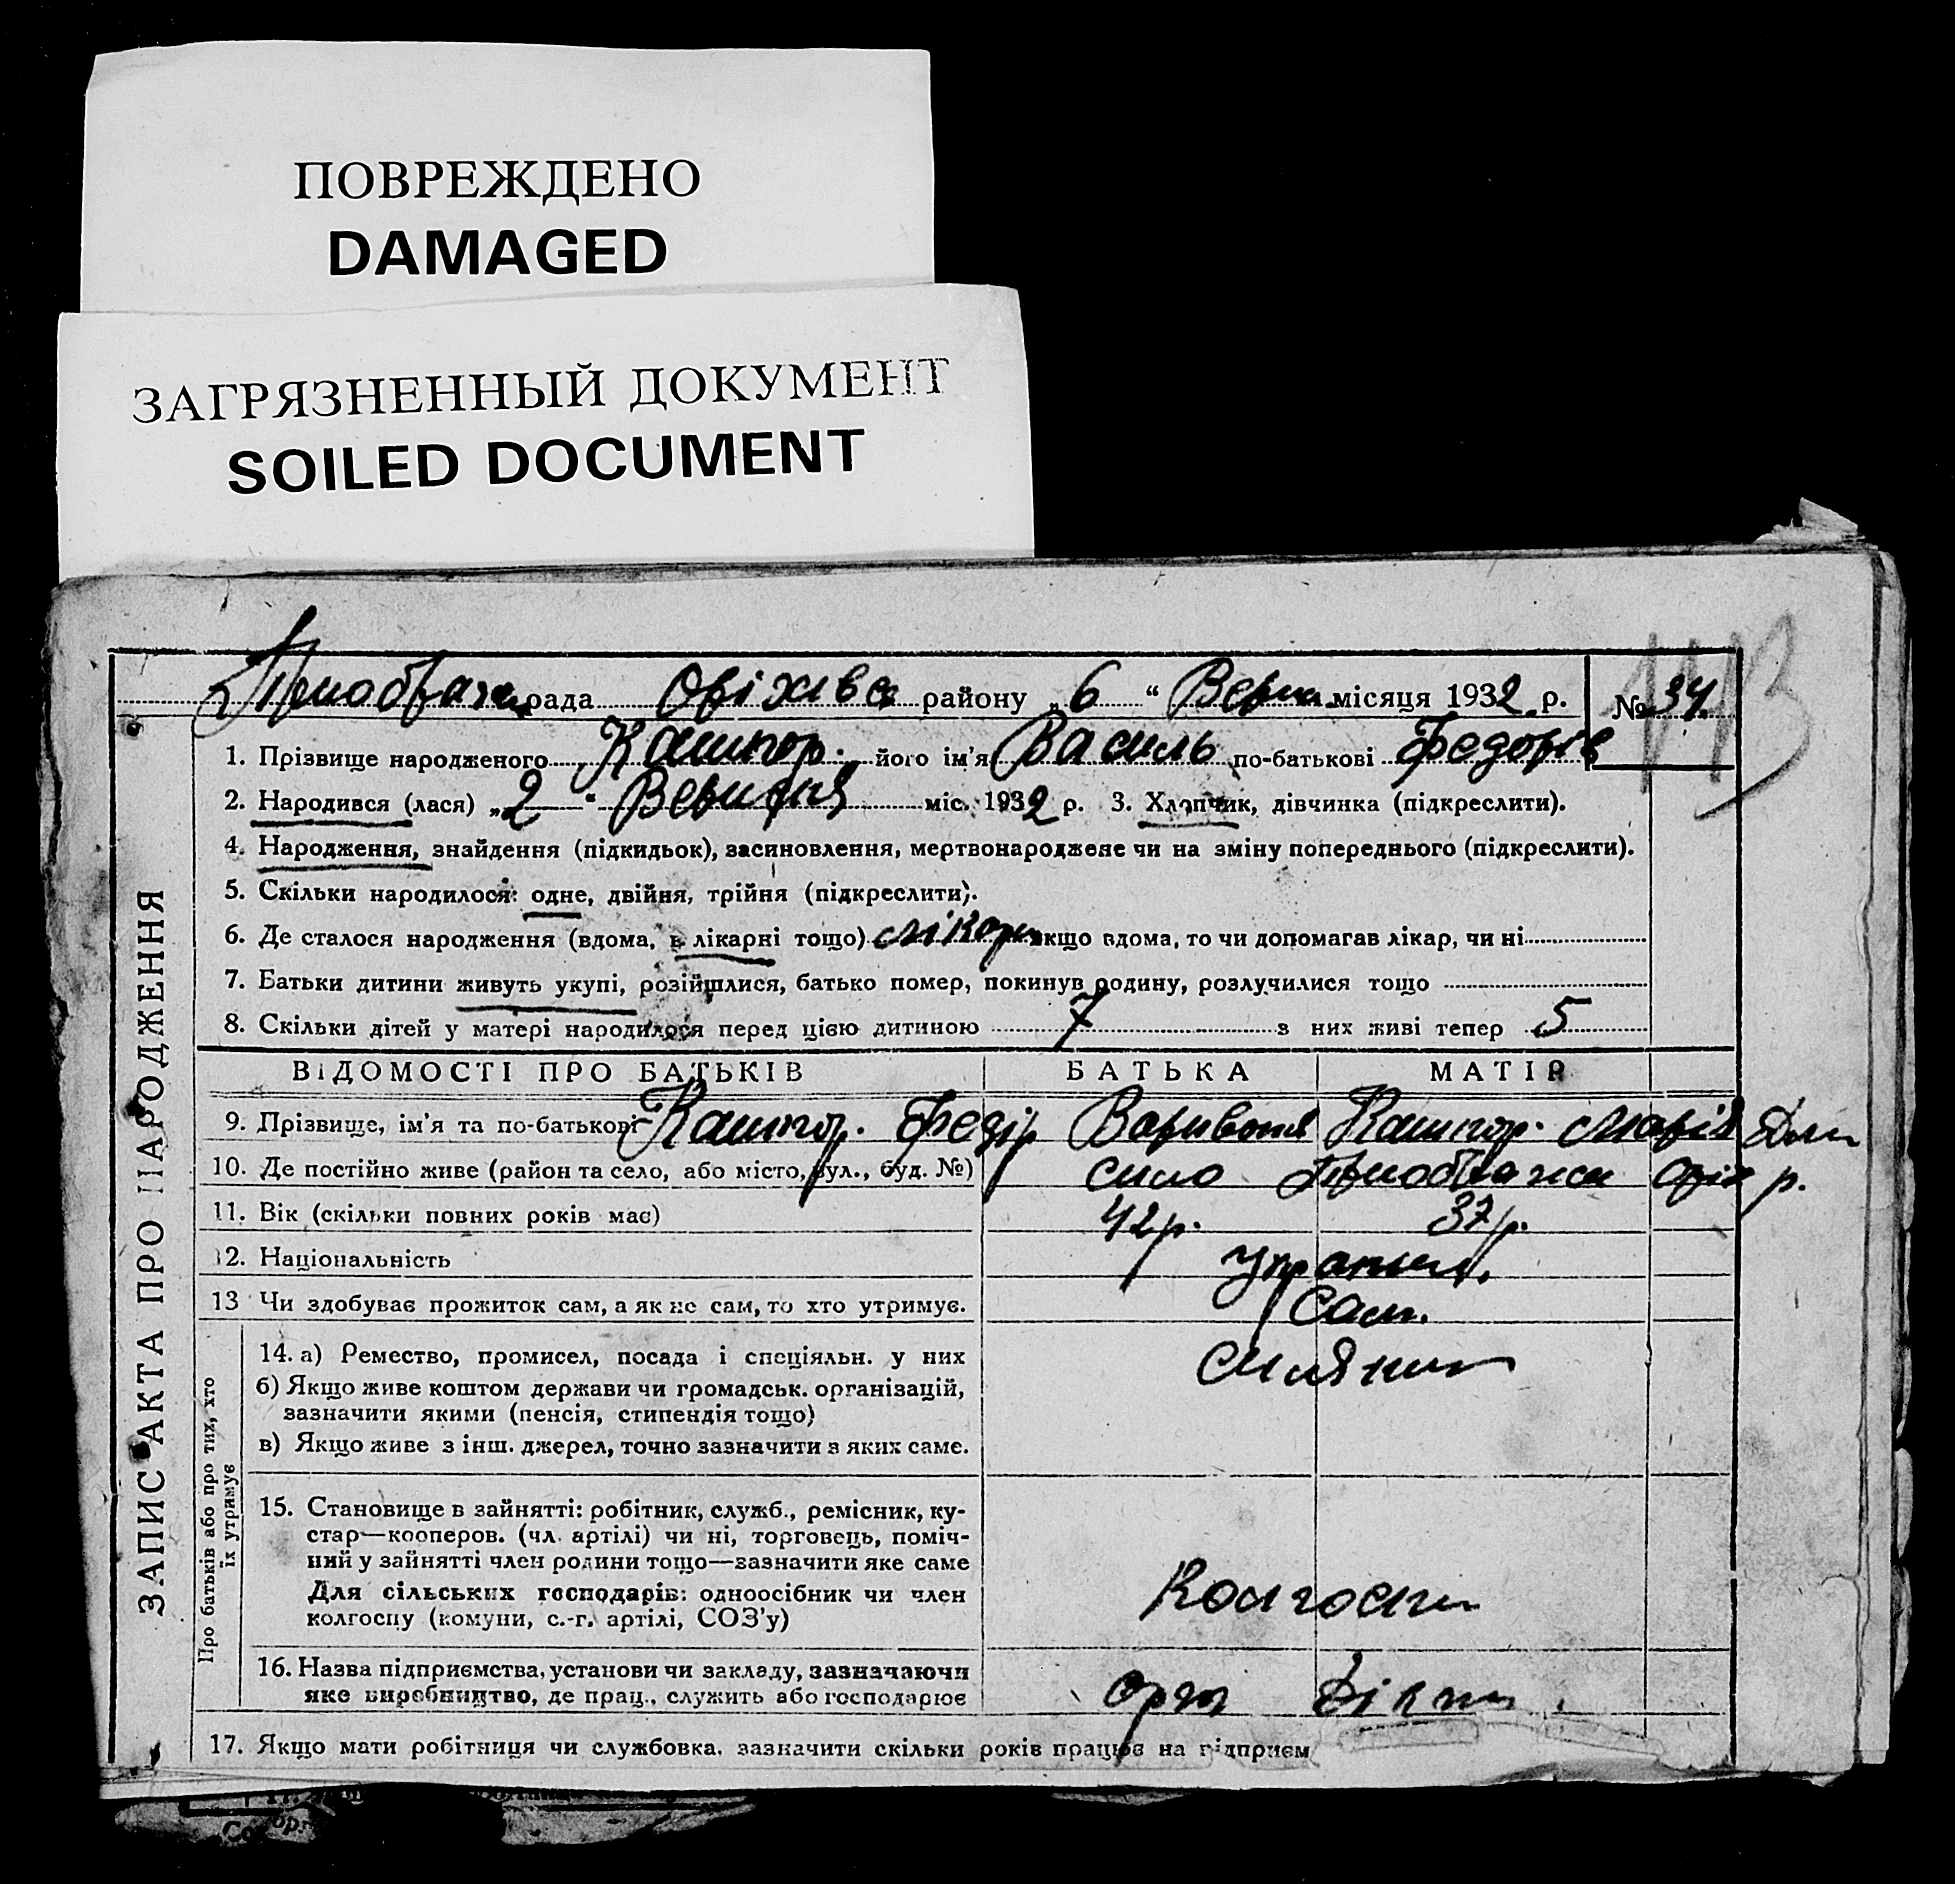 ПОВРЕЖДЕНО
DAMAGED
ЗАГРЯЗНЕННЫЙ ДОКУМЕНТ
SOILED DOCUMENT
рада Оріхівс району „6“ Верес місяця 1932 р. № 34
1. Прізвище народженого Кашпор. його ім'я Василь по-батькові Федорів
2. Народився (лася) „2“ Вересня міс. 1932 р. 3. Хлопчик, дівчинка (підкреслити).
4. Народження, знайдення (підкидьок), засиновлення, мертвонароджене чи на зміну попереднього (підкреслити).
5. Скільки народилося: одне, двійня, трійня (підкреслити).
6. Де сталося народження (вдома, в лікарні тощо) якщо вдома, то чи допомагав лікар, чи ні
7. Батьки дитини живуть укупі, розійшлися, батько помер, покинув родину, розлучилися тощо
8. Скільки дітей у матері народилося перед цією дитиною 7 з них живі тепер 5
ВІДОМОСТІ ПРО БАТЬКІВ БАТЬКА МАТІР
9. Прізвище, ім'я та по-батькові Кашпор. Федір Кашпор. Марія
10. Де постійно живе (район та село, або місто, вул., буд. №) село р.
11. Вік (скільки повних років має) 42 р. 37 р.
12. Національність
13 Чи здобуває прожиток сам, а як не сам, то хто утримує. Сам.
14. а) Ремество, промисел, посада і спеціяльн. у них
б) Якщо живе коштом держави чи громадськ. організацій,
зазначити якими (пенсія, стипендія тощо)
в) Якщо живе з інш. джерел, точно зазначити з яких саме.
15. Становище в зайнятті: робітник, служб., ремісник, ку-
стар—кооперов. (чл. артілі) чи ні, торговець, поміч-
ний у зайнятті член родини тощо—зазначити яке саме
Для сільських господарів: одноосібник чи член
колгоспу (комуни, с.-г. артілі, СОЗ'у)
Колгосп
16. Назва підприємства, установи чи закладу, зазначаючи
яке виробництво, де прац., служить або господарює
17. Якщо мати робітниця чи службовка, зазначити скільки років працює на підприєм
ЗАПИС АКТА ПРО НАРОДЖЕННЯ
Про батьків або про тих, хто
їх утримує